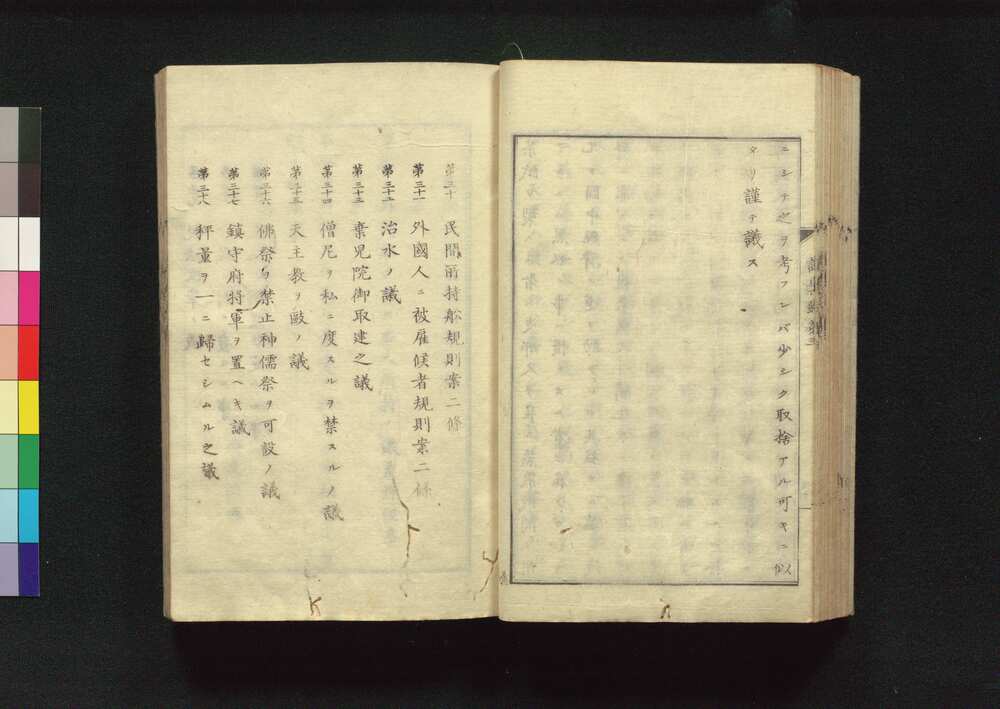 ニシテ之ヲ考フレバ少シク取捨アル可キニ似
タリ謹テ議ス
第三十 民間所持船規則案二條
第三十一 外國人ニ被雇候者規則案二條
第三十二 治水ノ議
第三十三 棄児院御取建之議
第三十四 僧尼ヲ私ニ度スルヲ禁スルノ議
第三十五 天主教ヲ敺ノ議
第三十六 佛祭ヲ禁止神儒祭ヲ可設ノ議
第三十七 鎮守府将軍ヲ置ヘキ議
第三十八 秤量ヲ一ニ歸セシムル之議